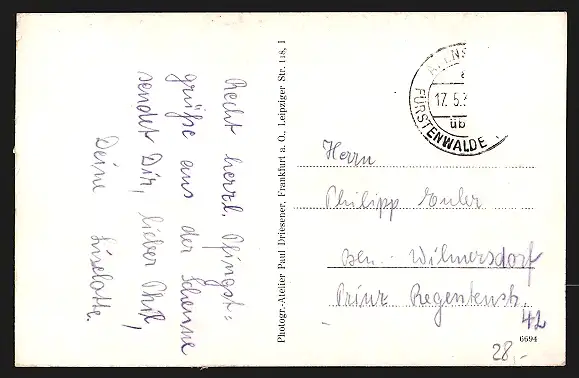 Recht herzl. Pfingst=
grüße aus der Scheune
sendet Dir, lieber Phil,
Deine Liselotte.
Photogr.-Atelier Paul Driesener, Frankfurt a. O., Leipziger Str. 118, I
17. 5. 3
üb
FÜRSTENWALDE
Herrn
Philipp Euler
Bln.- Wilmersdorf
Prinz Regentenstr.
42
6694
28,-